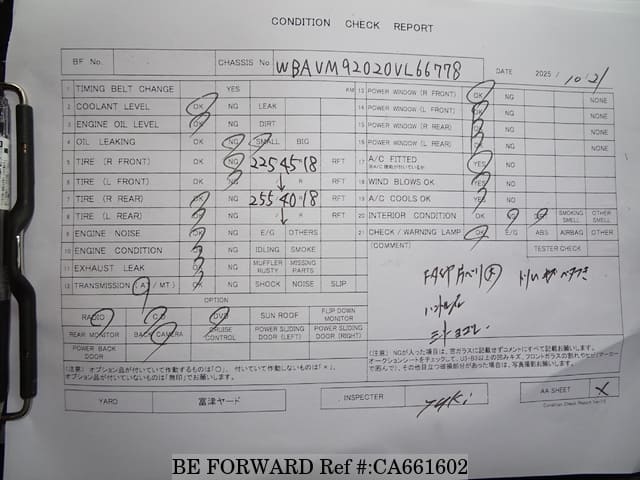 CONDITION CHECK REPORT
BF No. CHASSIS No WBAVM92020VL66778 DATE 2025 / 10 21
1 TIMING BELT CHANGE YES KM
2 COOLANT LEVEL OK NG LEAK
3 ENGINE OIL LEVEL OK NG DIRT
4 OIL LEAKING OK NG SMALL BIG
5 TIRE (R FRONT) OK NG 225 45-18 RFT
6 TIRE (L FRONT) OK NG ↓ R RFT
7 TIRE (R REAR) OK NG 255 40-18 RFT
8 TIRE (L REAR) OK NG ↓ R RFT
9 ENGINE NOISE OK NG E/G OTHERS
10 ENGINE CONDITION OK NG IDLING SMOKE
11 EXHAUST LEAK OK NG MUFFLER RUSTY MISSING PARTS
12 TRANSMISSION (AT / MT) OK NG SHOCK NOISE SLIP
13 POWER WINDOW (R FRONT) OK NG NONE
14 POWER WINDOW (L FRONT) OK NG NONE
15 POWER WINDOW (R REAR) OK NG NONE
16 POWER WINDOW (L REAR) OK NG NONE
17 A/C FITTED YES NO
18 WIND BLOWS OK YES NO
19 A/C COOLS OK YES NO
20 INTERIOR CONDITION OK NG SMOKING SMELL OTHER SMELL
21 CHECK / WARNING LAMP OK E/G ABS AIRBAG OTHER
(COMMENT) TESTER CHECK
OPTION
RADIO CD DVD SUN ROOF FLIP DOWN MONITOR
REAR MONITOR BACK CAMERA CRUISE CONTROL POWER SLIDING DOOR (LEFT) POWER SLIDING DOOR (RIGHT)
POWER BACK DOOR
(注意) オプション品が付いていて作動するものは「○」, 付いていて作動しないものは「×」,
オプション品が付いていないものは「無印」でお願いします。
(注意) NGが入った項目は、窓ガラスに記載せずコメントにすべて記載お願いします。
YARD 富津ヤード INSPECTER AA SHEET X
Condition Check Report Ver13
BE FORWARD Ref #:CA661602